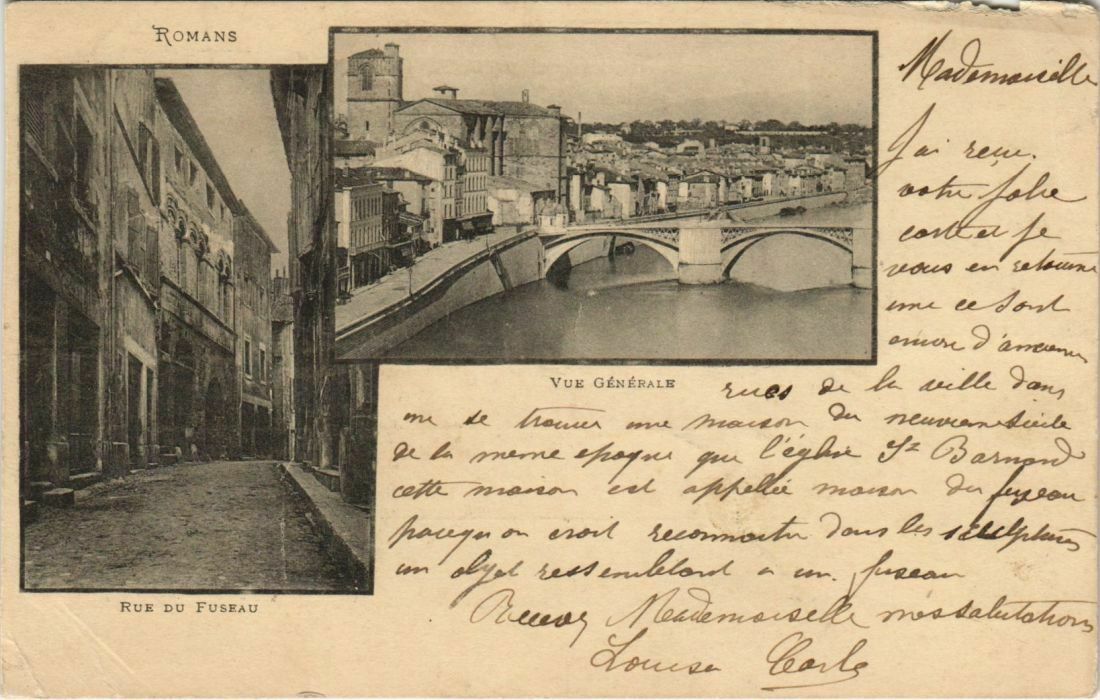 ROMANS
Mademoiselle
J'ai reçu
votre jolie
carte et je
vous en retourne
une ce sont
encore d'anciennes
VUE GÉNÉRALE
rues de la ville dans
une se trouve une maison du neuvieme siècle
de la meme epoque que l'église St Barnard
cette maison est appellée maison du fuseau
parcequ'on croit reconnaitre dans les sculptures
un objet ressemblant a un fuseau
RUE DU FUSEAU
Recevez Mademoiselle mes salutations
Louise